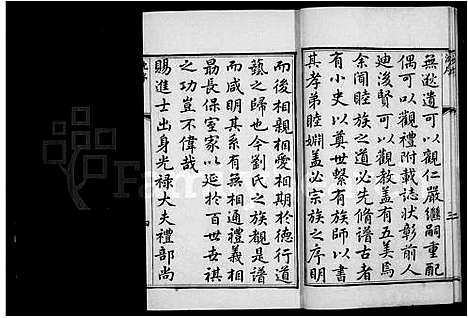 無愁遺可以觀仁嚴繼嗣重配
偶可以觀禮附載誌狀彰前人
迪後賢可以觀教蓋有五美焉
余聞睦族之道必先脩譜古者
有小史以奠世繫有族師以書
其孝弟睦婣蓋必宗族之序明
而後相親相愛相期於德行道
藝之歸也今劉氏之族覩是譜
而咸明其系有無相通禮義相
朂長保室家以延於百世⺾祺
之功豈不偉哉
賜進士出身光祿大夫禮部尚